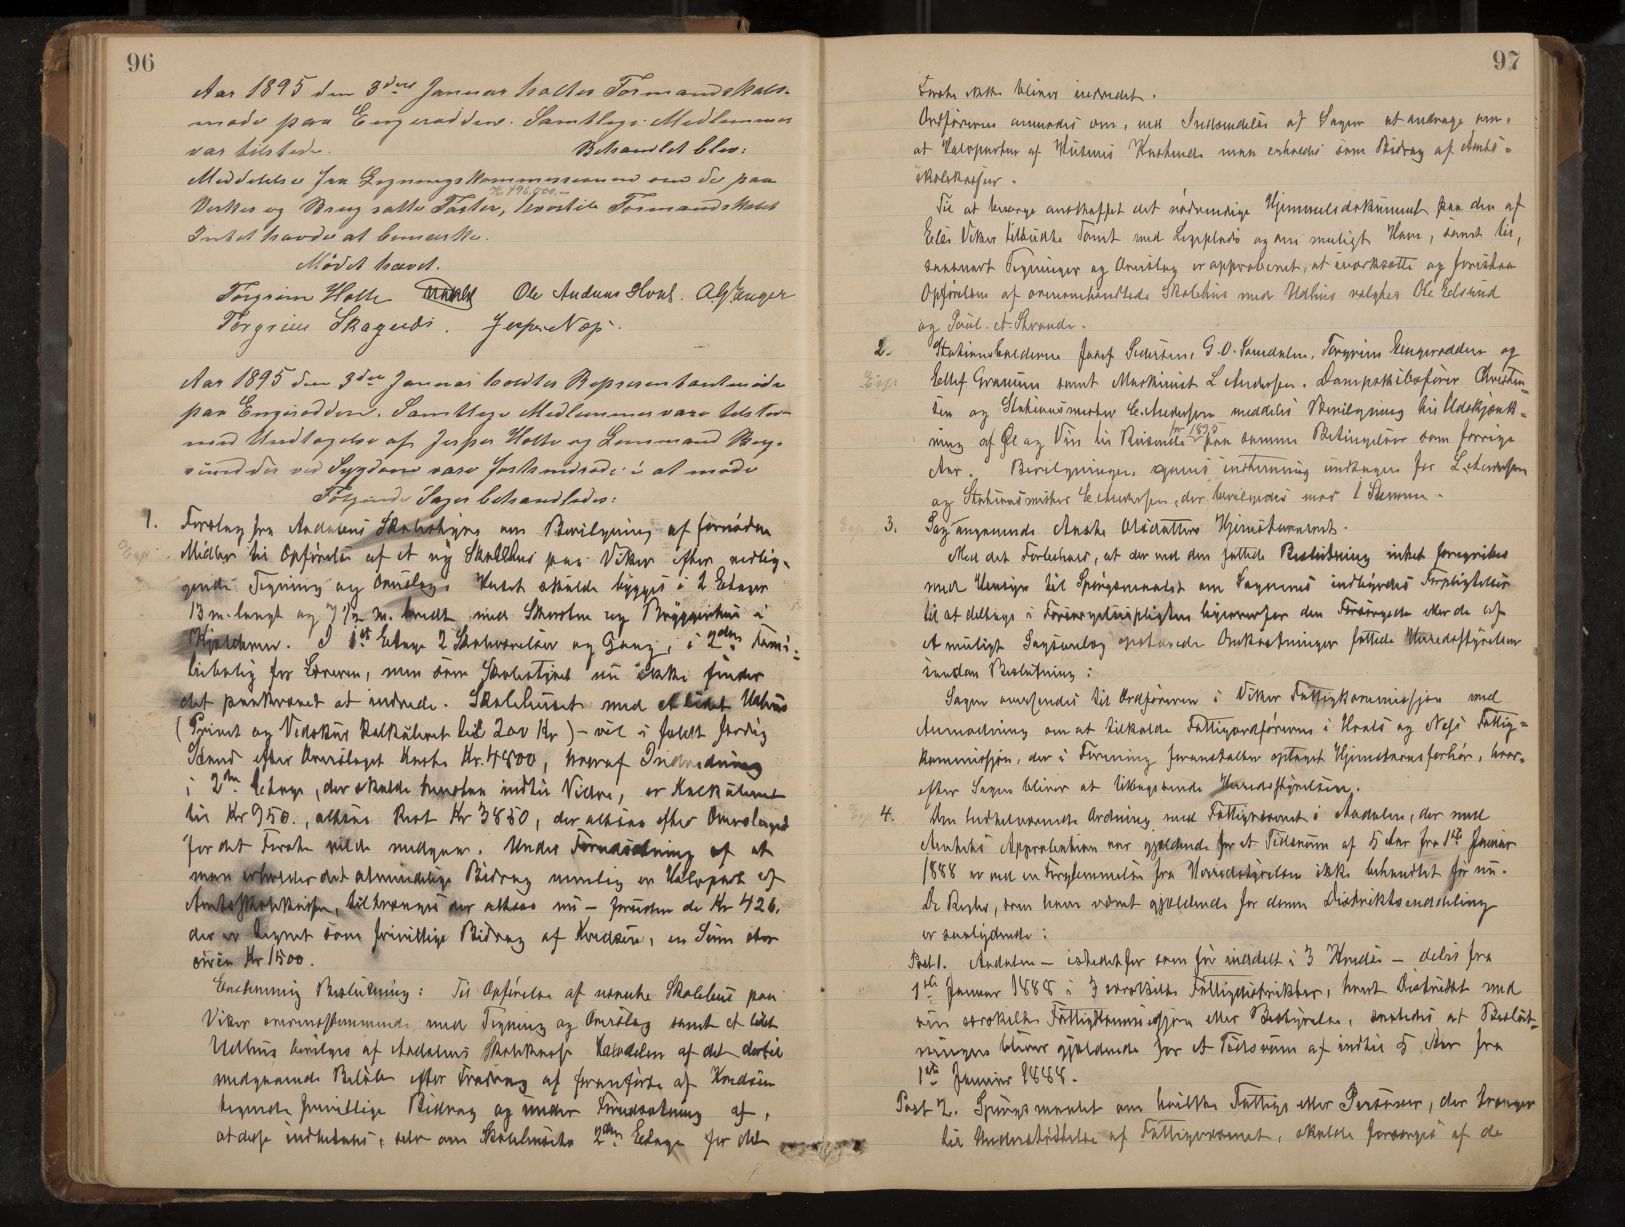 96
Aar 1895 den 3die Januar holtes Formandskabs-
møde paa Engerodden. Samtlige Medlemmer
var tilstede. Behandlet blev:
Meddelelse fra Ligningskommissionen om de paa
Kr 496,000.-
Verker og Brug satte Taster, hvortil Formandskabet
Intet havde at bemærke.
Mødet hævet.
Torgrim Holte Ole Andreas Hval. A G Enger
Torgrim Skagnæs. Jesper Næs.
Aar 1895 den 3die Januar holdtes Repræsentantmøde
paa Engerodden. Samtlige Medlemmer vare tilstede
med Undtagelse af Jesper Holte og Lensmand Berg-
sund der ved Sygdom vare forhindrede i at møde
Følgende Sager behandledes:
1. Forslag fra Aadalens Skolestyre om Bevilgning af fornødne
Exp. Midler til Opførelse af et nyt Skolehus paa Viker efter vedlig-
gende Tegning og Overslag. Huset skulde bygges i 2 Etager
13 m. langt og 7 1/2 m. bredt med Skorsten og Bryggerhus i
Kjælderen. I 1st Etage 2 Skoleværelser og Gang, i 2den Fami-
liebolig for Læreren, men som Skolestyret nu ikke finder
det paakrævet at indrede. Skolehuset med et lidet Udhus
(Privet og Vedskur kalkuleret til 200 Kr) - vil i fuldt færdig
Stand efter Overslaget koste Kr. 4800, hvoraf Indredning
i 2den Etage, der skulde henstaa indtil Videre, er kalkuleret
til Kr 950., altsaa Rest Kr 3850, der altsaa efter Overslaget
for det Første vilde medgaa. Under Forudsætning af at
man erholder det almindelige Bidrag nemlig en Halvpart af
Amtsskolekassen, tiltrænges der altsaa nu - foruden de Kr 426,
der er tegnet som frivillige Bidrag af Kredsen, en Sum stor
circa Kr 1500.
Enstemmig Beslutning: Til Opførelse af nævnte Skolehus paa
Viker overensstemmende med Tegning og Overslag samt et lidet
Udhus bevilges af Aadalens Skolekasse Halvdelen af det dertil
medgaaende Beløb efter Fradrag af foranførte af Kredsen
tegnede frivillige Bidrag og under Forudsætning af,
at disse indbetales, selv om Skolehusets 2den Etage for det
97
Første ikke bliver indredet.
Ordføreren anmodes om, ved Indsendelse af Sagen at andrage om,
at Halvparten af Husets Kostende maa erholdes som Bidrag af Amts-
skolekassen.
Til at besørge anskaffet det nødvendige Hjemmelsdokument paa den af
Elles Viker tilbudte Tomt med Legeplads og om muligt Have, samt til,
saasnart Tegninger og Overslag er approberet, at iværksætte og forestaa
Opførelsen af ovenomhandlede Skolehus med Udhus valgtes Ole Eelsrud
og Paul. A. Strande.
2. Stationsholderne Josef Pedersen, G. O. Somdalen, Torgrim Engerodden og
Exp Ellef Granum samt Maskinist L Andersen, Dampskibsfører Christen-
sen og Stationsmester C. Andersen meddeles Bevilgning til Udskjænk-
for 1895
ning af Øl og Vin til Reisende paa samme Betingelser som forrige
Aar. Bevilgningen gaves enstemmig undtagen for L. Andersen
og Stationsmester C. Andersen, der bevilgedes mod 1 Stemme.
Exp 3. Sag angaaende Anne Olsdatters Hjemstavnsret.
Med det Forbehold, at der ved den fattede Beslutning intet foregribes
med Hensyn til Spørgsmaalet om Sognenes indbyrdes Forpligtelser
til at deltage i Forsørgelsespligten ligeoverfor den Forsørgede eller de af
et muligt Sagsanlæg opstaaede Omkostninger fattede Herredsstyrelsen
saadan Beslutning:
Sagen oversendes til Ordføreren i Viker Fattigkommission med
Anmodning om at tilkalde Fattigordførerne i Hvals og Næs Fattig-
kommission, der i Forening foranstalter optaget Hjemstavnsforhør, hvor-
efter Sagen bliver at tilbagesende Herredsstyrelsen.
Exp 4. Den indtilværende Ordning med Fattigvæsenet i Aadalen, der med
Amtets Approbation var gjældende for et Tidsrum af 5 Aar fra 1ste Januar
1888 er ved en Forglemmelse fra Herredsstyrelsen ikke behandlet før nu.
De Regler, som have været gjældende for denne Distriktsinddeling
er saalydende:
Post 1. Aadalen - istedetfor som før inddelt i 3 Kredse - deles fra
1ste Januar 1888 i 3 særskilte Fattigdistrikter, hvert Distrikt med
sin særskilte Fattigkommission eller Bestyrelse, saaledes at Beslut-
ningen bliver gjældende for et Tidsrum af indtil 5 Aar fra
1ste Januar 1888.
Post 2. Spørgsmaalet om hvilke Fattige eller Personer, der trænger
til Understøttelse af Fattigvæsenet, skulde forsørges af de